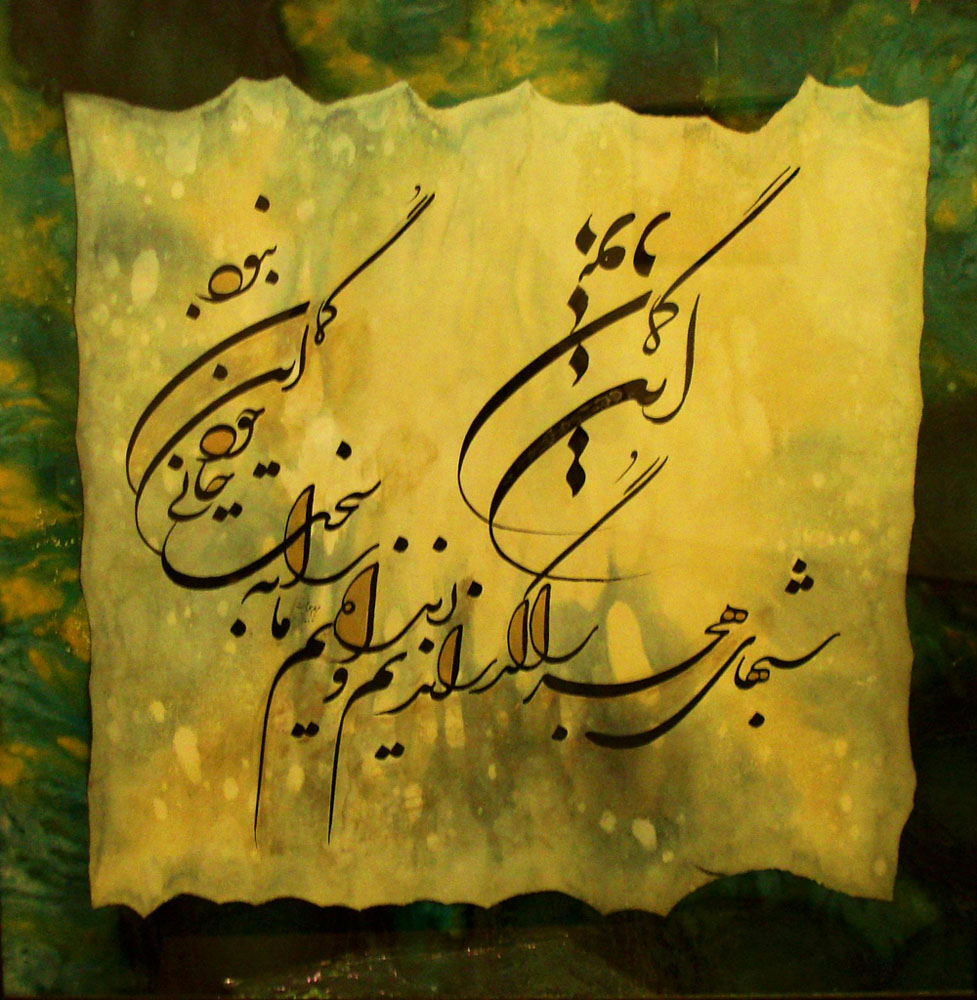 شبهای هجر را گذراندیم و زنده ایم
ما را به سخت جانی خود این گمان نبود